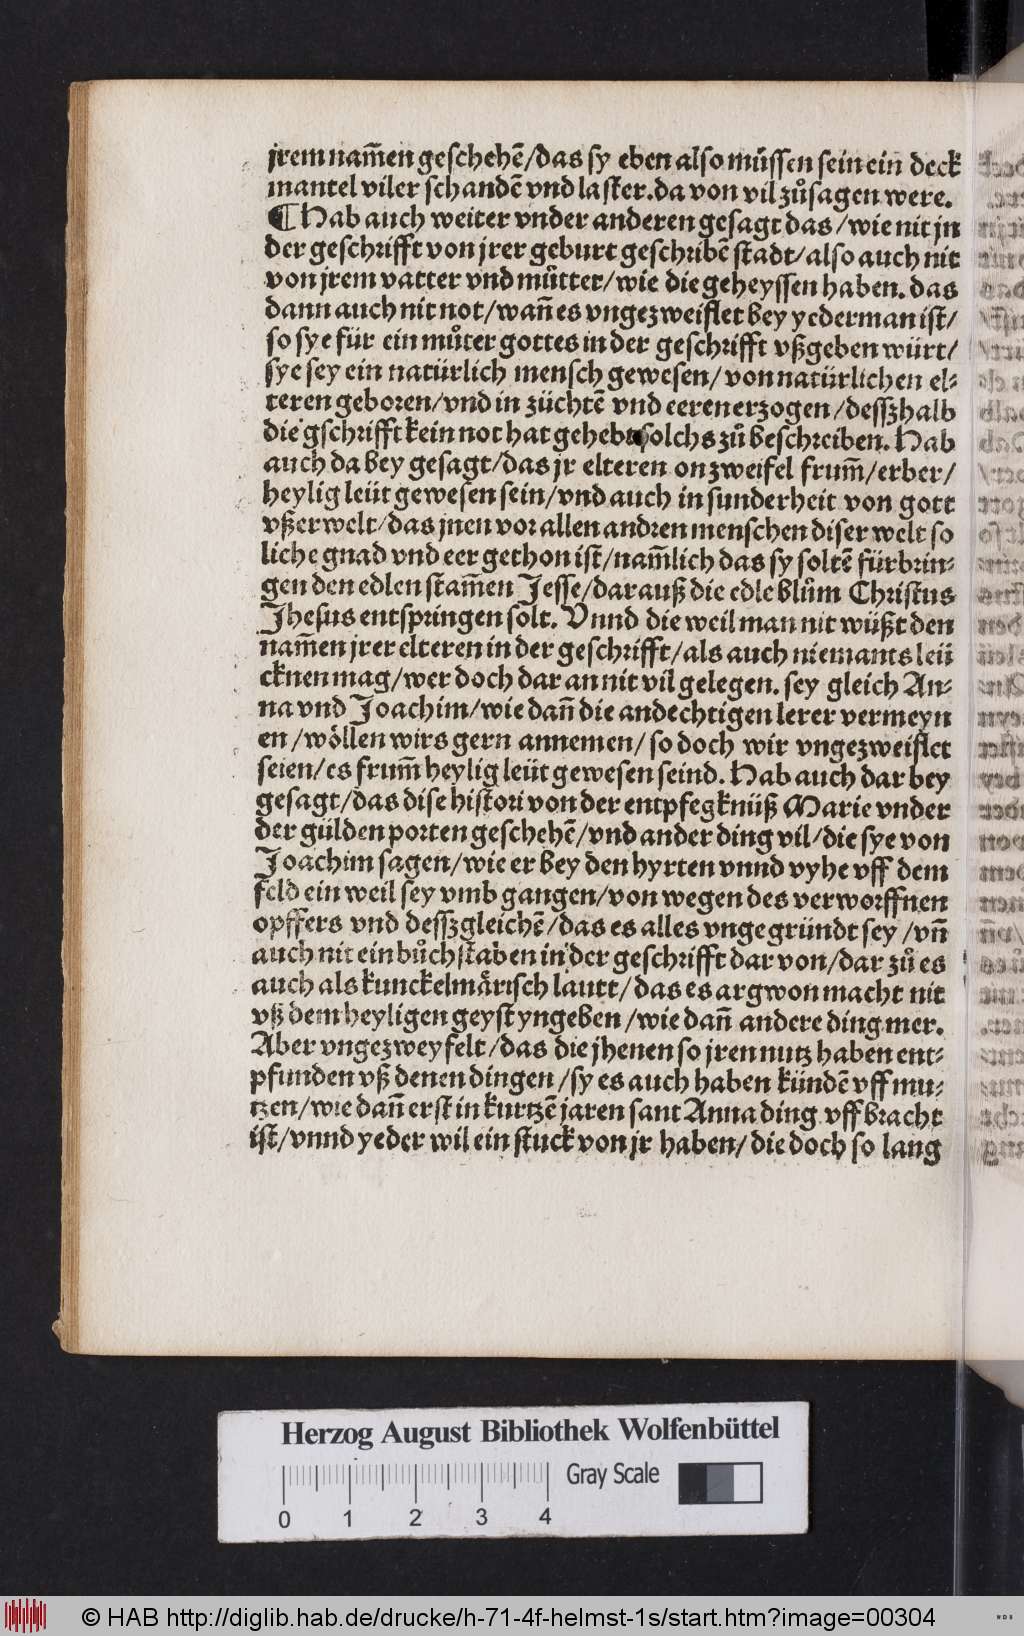 jrem nam̄en geschehē/das sy eben also müssen sein ein deck
mantel viler schandē vnd laster.da von vil zůsagen were.
¶ Hab auch weiter vnder anderen gesagt das/wie nit jn
der geschrifft von jrer geburt geschribē stadt/also auch nit
von jrem vatter vnd můtter/wie die geheyssen haben.das
dann auch nit not/wan̄ es vngezweiflet bey yederman ist/
so sye für ein můter gottes in der geschrifft vßgeben würt/
sye sey ein natürlich mensch gewesen/von natürlichen el⸗
teren geboren/vnd in züchtē vnd eeren erzogen/desszhalb
die gschrifft kein not hat gehebt solchs zů beschreiben. Hab
auch da bey gesagt/das jr elteren on zweifel frum̄/erber/
heylig leüt gewesen sein/vnd auch in sunderheit von gott
vßerwelt/das jnen vor allen andren menschen diser welt so
liche gnad vnd eer gethon ist/nam̄lich das sy soltē fürbrin⸗
gen den edlen stam̄en Jesse/dar auß die edle blům Christus
Jhesus entspringen solt. Vnnd die weil man nit wüßt den
nam̄en jrer elteren in der geschrifft/als auch niemants leü
cknen mag/wer doch dar an nit vil gelegen.sey gleich An⸗
na vnd Joachim/wie dan̄ die andechtigen lerer vermeyn
en/wöllen wirs gern annemen/so doch wir vngezweiflet
seien/es frum̄ heylig leüt gewesen seind. Hab auch dar bey
gesagt/das dise histori von der entpfegknüß Marie vnder
der gülden porten geschehē/vnd ander ding vil/die sye von
Joachim sagen/wie er bey den hyrten vnnd vyhe vff dem
feld ein weil sey vmb gangen/von wegen des verworffnen
opffers vnd desszgleichē/das es alles vngegründt sey/vn̄
auch nit ein bůchstaben in der geschrifft dar von/dar zů es
auch als kunckelmärisch lautt/das es argwon macht nit
vß dem heyligen geyst yngeben/wie dan̄ andere ding mer.
Aber vngezweyfelt/das die jhenen so jren nutz haben ent⸗
pfunden vß denen dingen/sy es auch haben kündē vff mu⸗
tzen/wie dan̄ erst in kurtzē jaren sant Anna ding vff bracht
ist/vnnd yeder wil ein stuck von jr haben/die doch so lang
Herzog August Bibliothek Wolfenbüttel
Gray Scale
0 1 2 3 4
© HAB http://diglib.hab.de/drucke/h-71-4f-helmst-1s/start.htm?image=00304